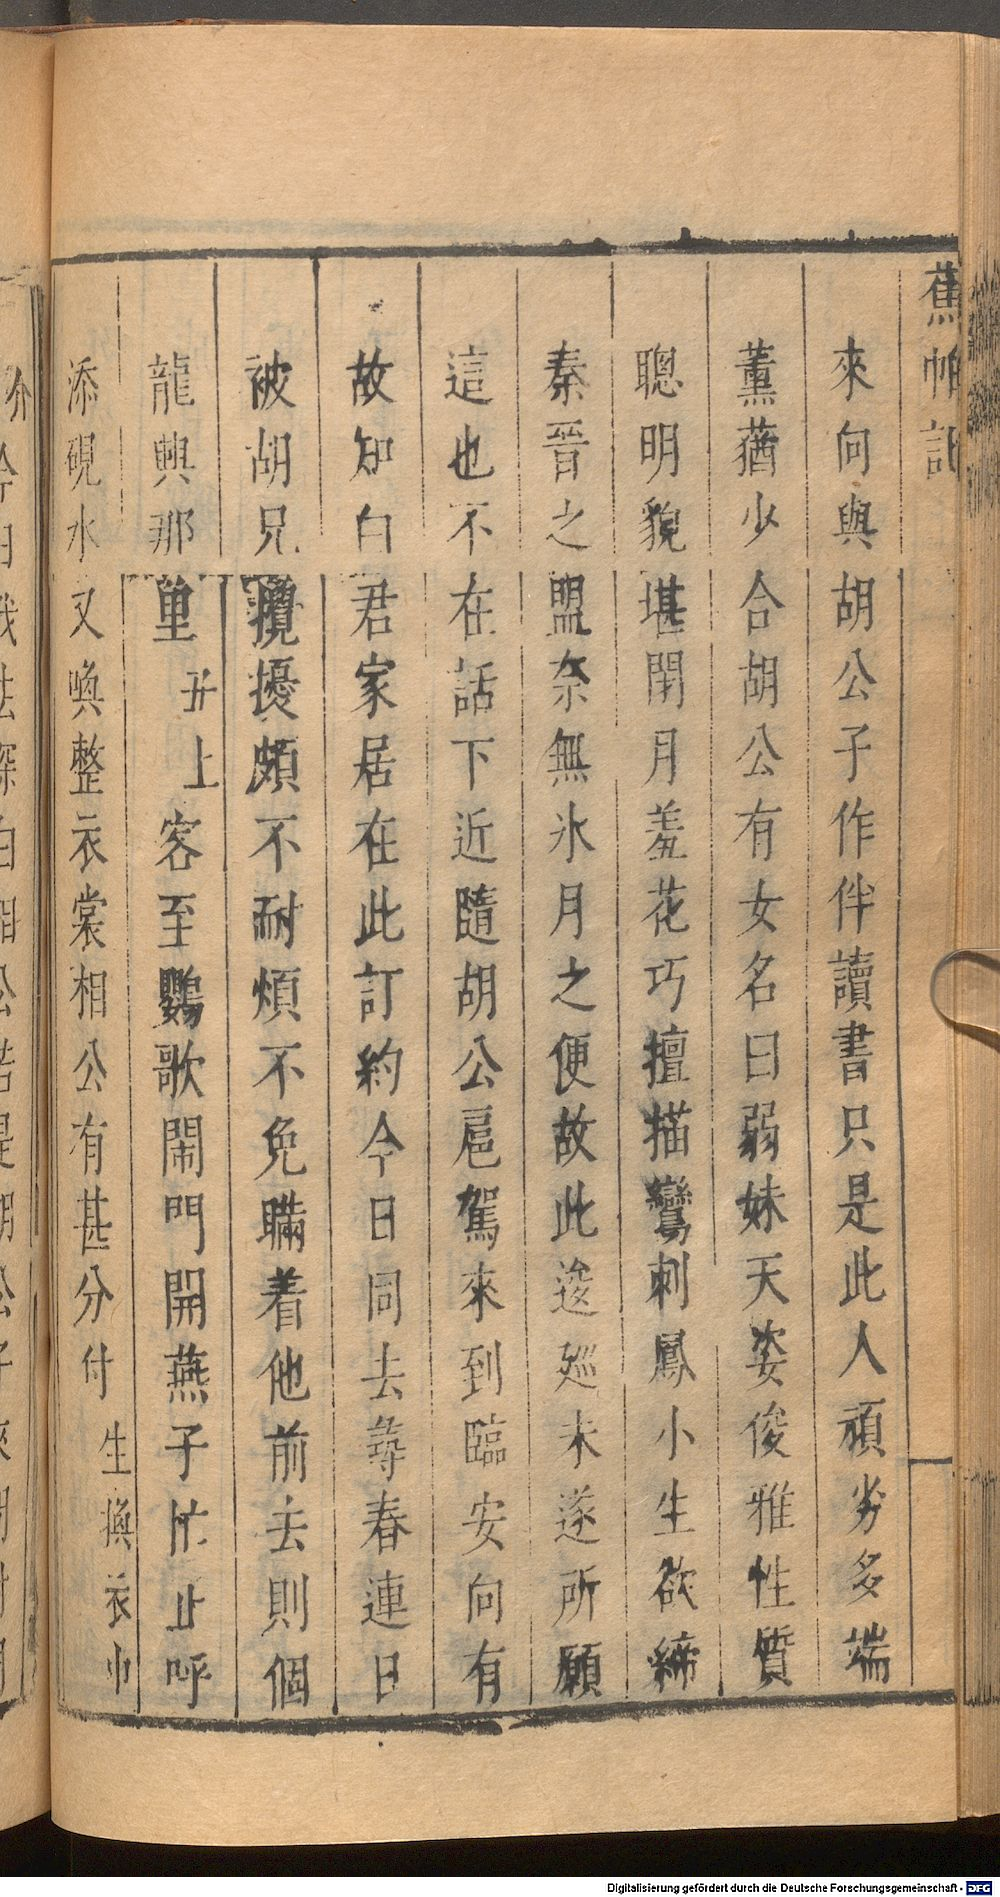 蕉帕記
來向與胡公子作伴讀書只是此人頑劣多端
薰蕕少合胡公有女名曰弱妹天姿俊雅性質
聰明貌堪閉月羞花巧擅描鸞刺鳳小生欲締
秦晉之盟奈無氷月之便故此逡巡未遂所願
這也不在話下近隨胡公扈駕來到臨安向有
故知白君家居在此訂約今日同去尋春連日
被胡兄攪擾頗不耐煩不免瞞着他前去則個
龍興那里丑上客至鸚歌鬧門開燕子忙止呼
添硯水又喚整衣裳相公有甚分付生換衣巾
Digitalisierung gefördert durch die Deutsche Forschungsgemeinschaft - DFG